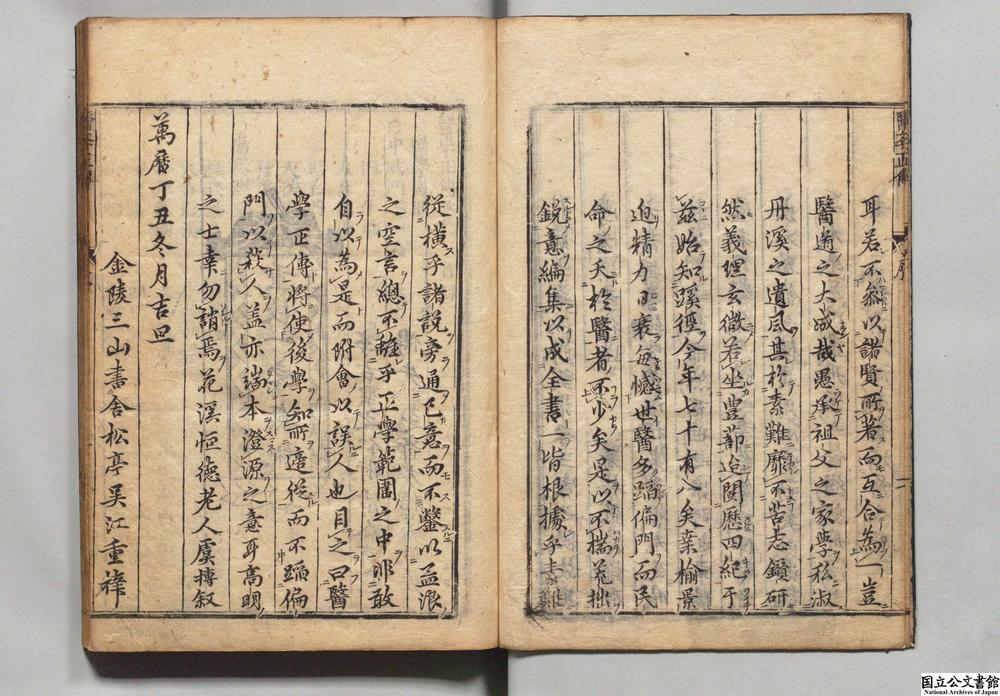 耳若不叅以諸賢所著而互合為一豈
醫道之大成哉愚承祖父之家學私淑
丹溪之遺風其於素難靡不苦志鑽研
然義理玄微若坐豊蔀迨閱歷四紀于
茲始知蹊徑今年七十有八矣桒榆景
迫精力日衰每憾世醫多蹈偏門而民
命之夭於醫者不少矣是以不揣荒拙
銳意編集以成全書一皆根據乎素難
從橫乎諸說旁通己意而不鑿以孟浪
之空言總不離乎正學範圍之中非敢
自以為是而附會以誤人也目之曰醫
學正傳將使後學知所適從而不蹈偏
門以殺人盖亦端本澄源之意耳高明
之士幸勿誚焉花溪恒德老人虞摶叙
萬曆丁丑冬月吉旦
金陵三山書舍松亭吳江重梓
醫學正傳
序
一
国立公文書館
National Archives of Japan